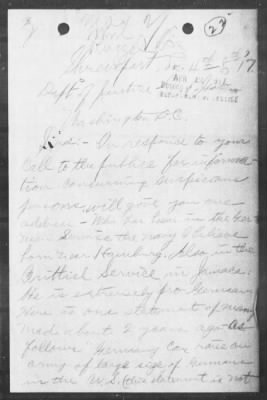 (23)
Shreveport La. 4th 17
Dept. of Justice
Washington D.C.
Sirs:- In response to your
Call to the public for informa-
tion concerning suspicious
persons will give you one
address - Who has been in the Ger-
man Service the navy I believe
born near Hamburg. Also in the
British Service in Jamaca.
He is extremely pro German
Here is one statement of many
Mad about 2 years ago as
follows "Germany Can raise an
army of large size of Germans
in the U.S. (this statement is not